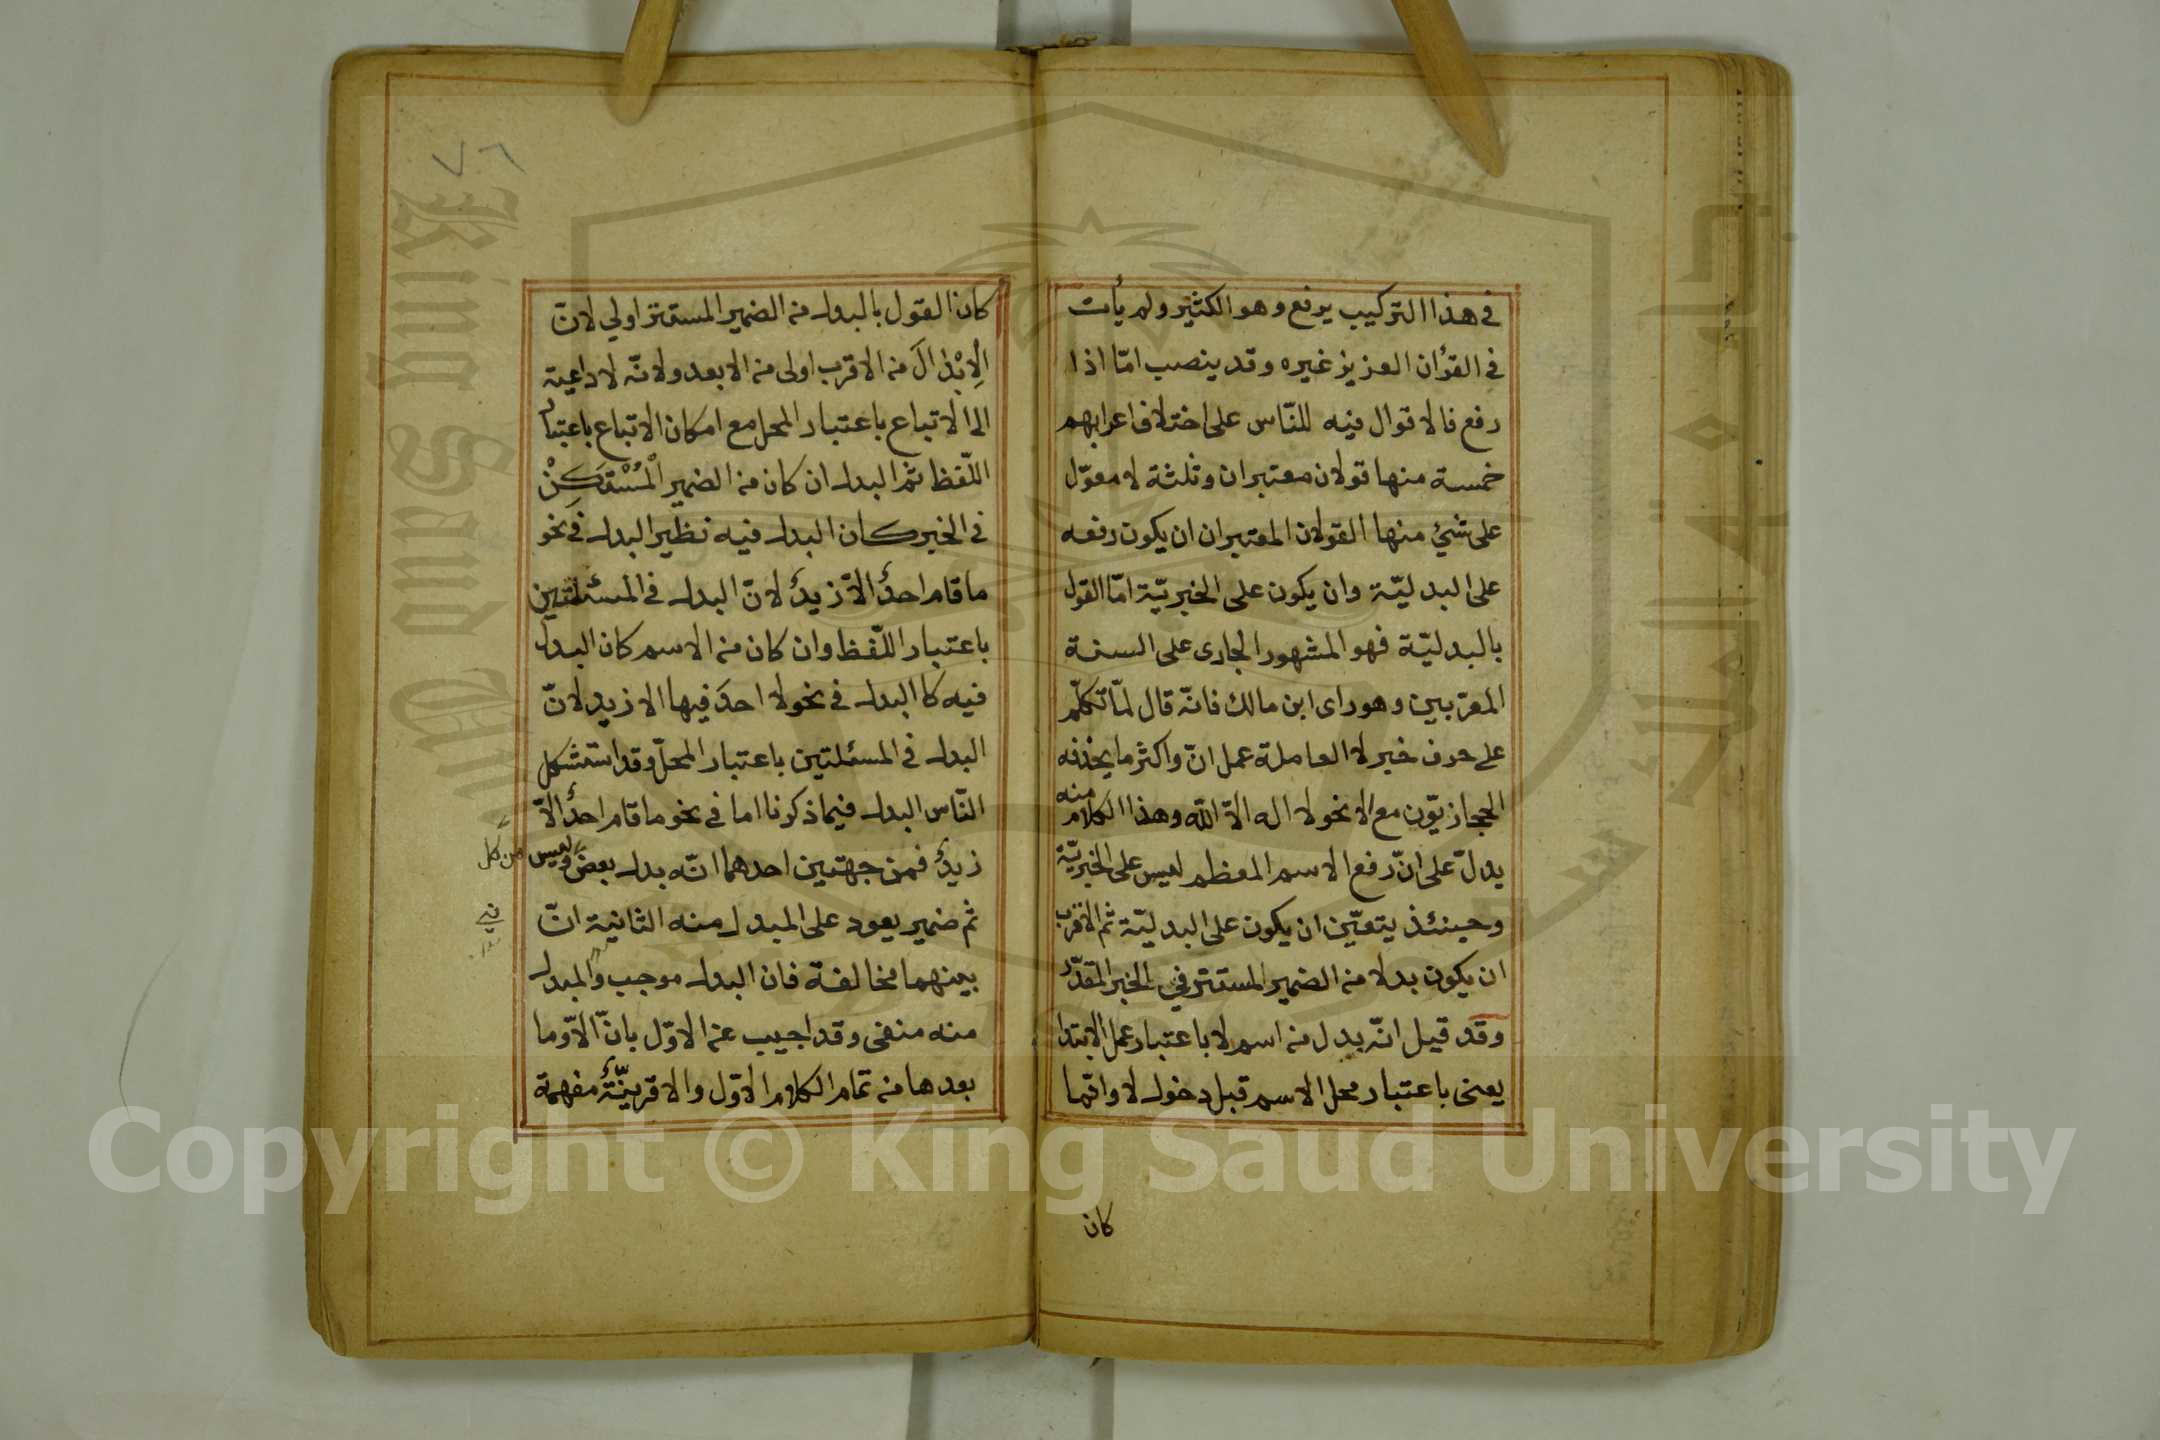 في هذا التركيب يرفع وهو الكثير ولم يأت
في القرأن العزيز غيره وقد ينصب امّا اذا
رفع فالاقوال فيه للنّاس على اختلاف اعرابهم
خمسة منها قولان معتبران وثلثة لا معوّل
على شيئ منها القولان المعتبران ان يكون رفعه
على البدليّة وان يكون على الخبريّة امّا القول
بالبدليّة فهو المشهور الجارى على السنة
المعرّبين وهو راى ابن مالك فانّه قال لمّا تكلّم
على حرف خبر لا العاملة عمل انّ واكثر ما يحذفه
الحجازيّون مع الا نحو لا اله الاّ الله وهذا الكلام منه
يدلّ على انّ رفع الاسم المعظم ليس على الخبريّة
وحينئذ يتعيّن ان يكون على البدليّة ثم الاقرب
ان يكون بدلا من الضمير المستتر في الخبر المقدّر
وقد قيل انّه بدل من اسم لا باعتبار عمل الابتدا
يعنى باعتبار محل الاسم قبل دخول لا وانّما
كان
٧٦
كان القول بالبدل من الضمير المستتر اولي لانّ
الإبْدالَ من الاقرب اولى من الابعد ولانّه لا داعية
الى الاتباع باعتبار المحل مع امكان الاتباع باعتبار
اللّفظ ثم البدل ان كان من الضمير الْمُسْتَكِنْ
في الخبر كان البدل فيه نظير البدل في نحو
ما قام احدٌ الاّ زيدٌ لانّ البدل في المسئلتين
باعتبار اللّفظ وان كان من الاسم كان البدل
فيه كا البدل في نحو لا احدَ فيها الا زيد لانّ
البدل في المسئلتين باعتبار المحلّ وقد استشكل
النّاس البدل فيما ذكرنا اما في نحو ما قام احدٌ الاّ
زيدٌ فمن جهتين احدهما انّه بدل بعض وليس من كل
ثم ضمير يعود على المبدل منه الثانية انّ
بينهما مخالفة فان البدل موجب والمبدل
منه منفى وقد اجيب عن الاوّل بانّ الاّ وما
بعدها من تمام الكلام الاوّل والا قرينّةٌ مفهمة
Copyright © King Saud University